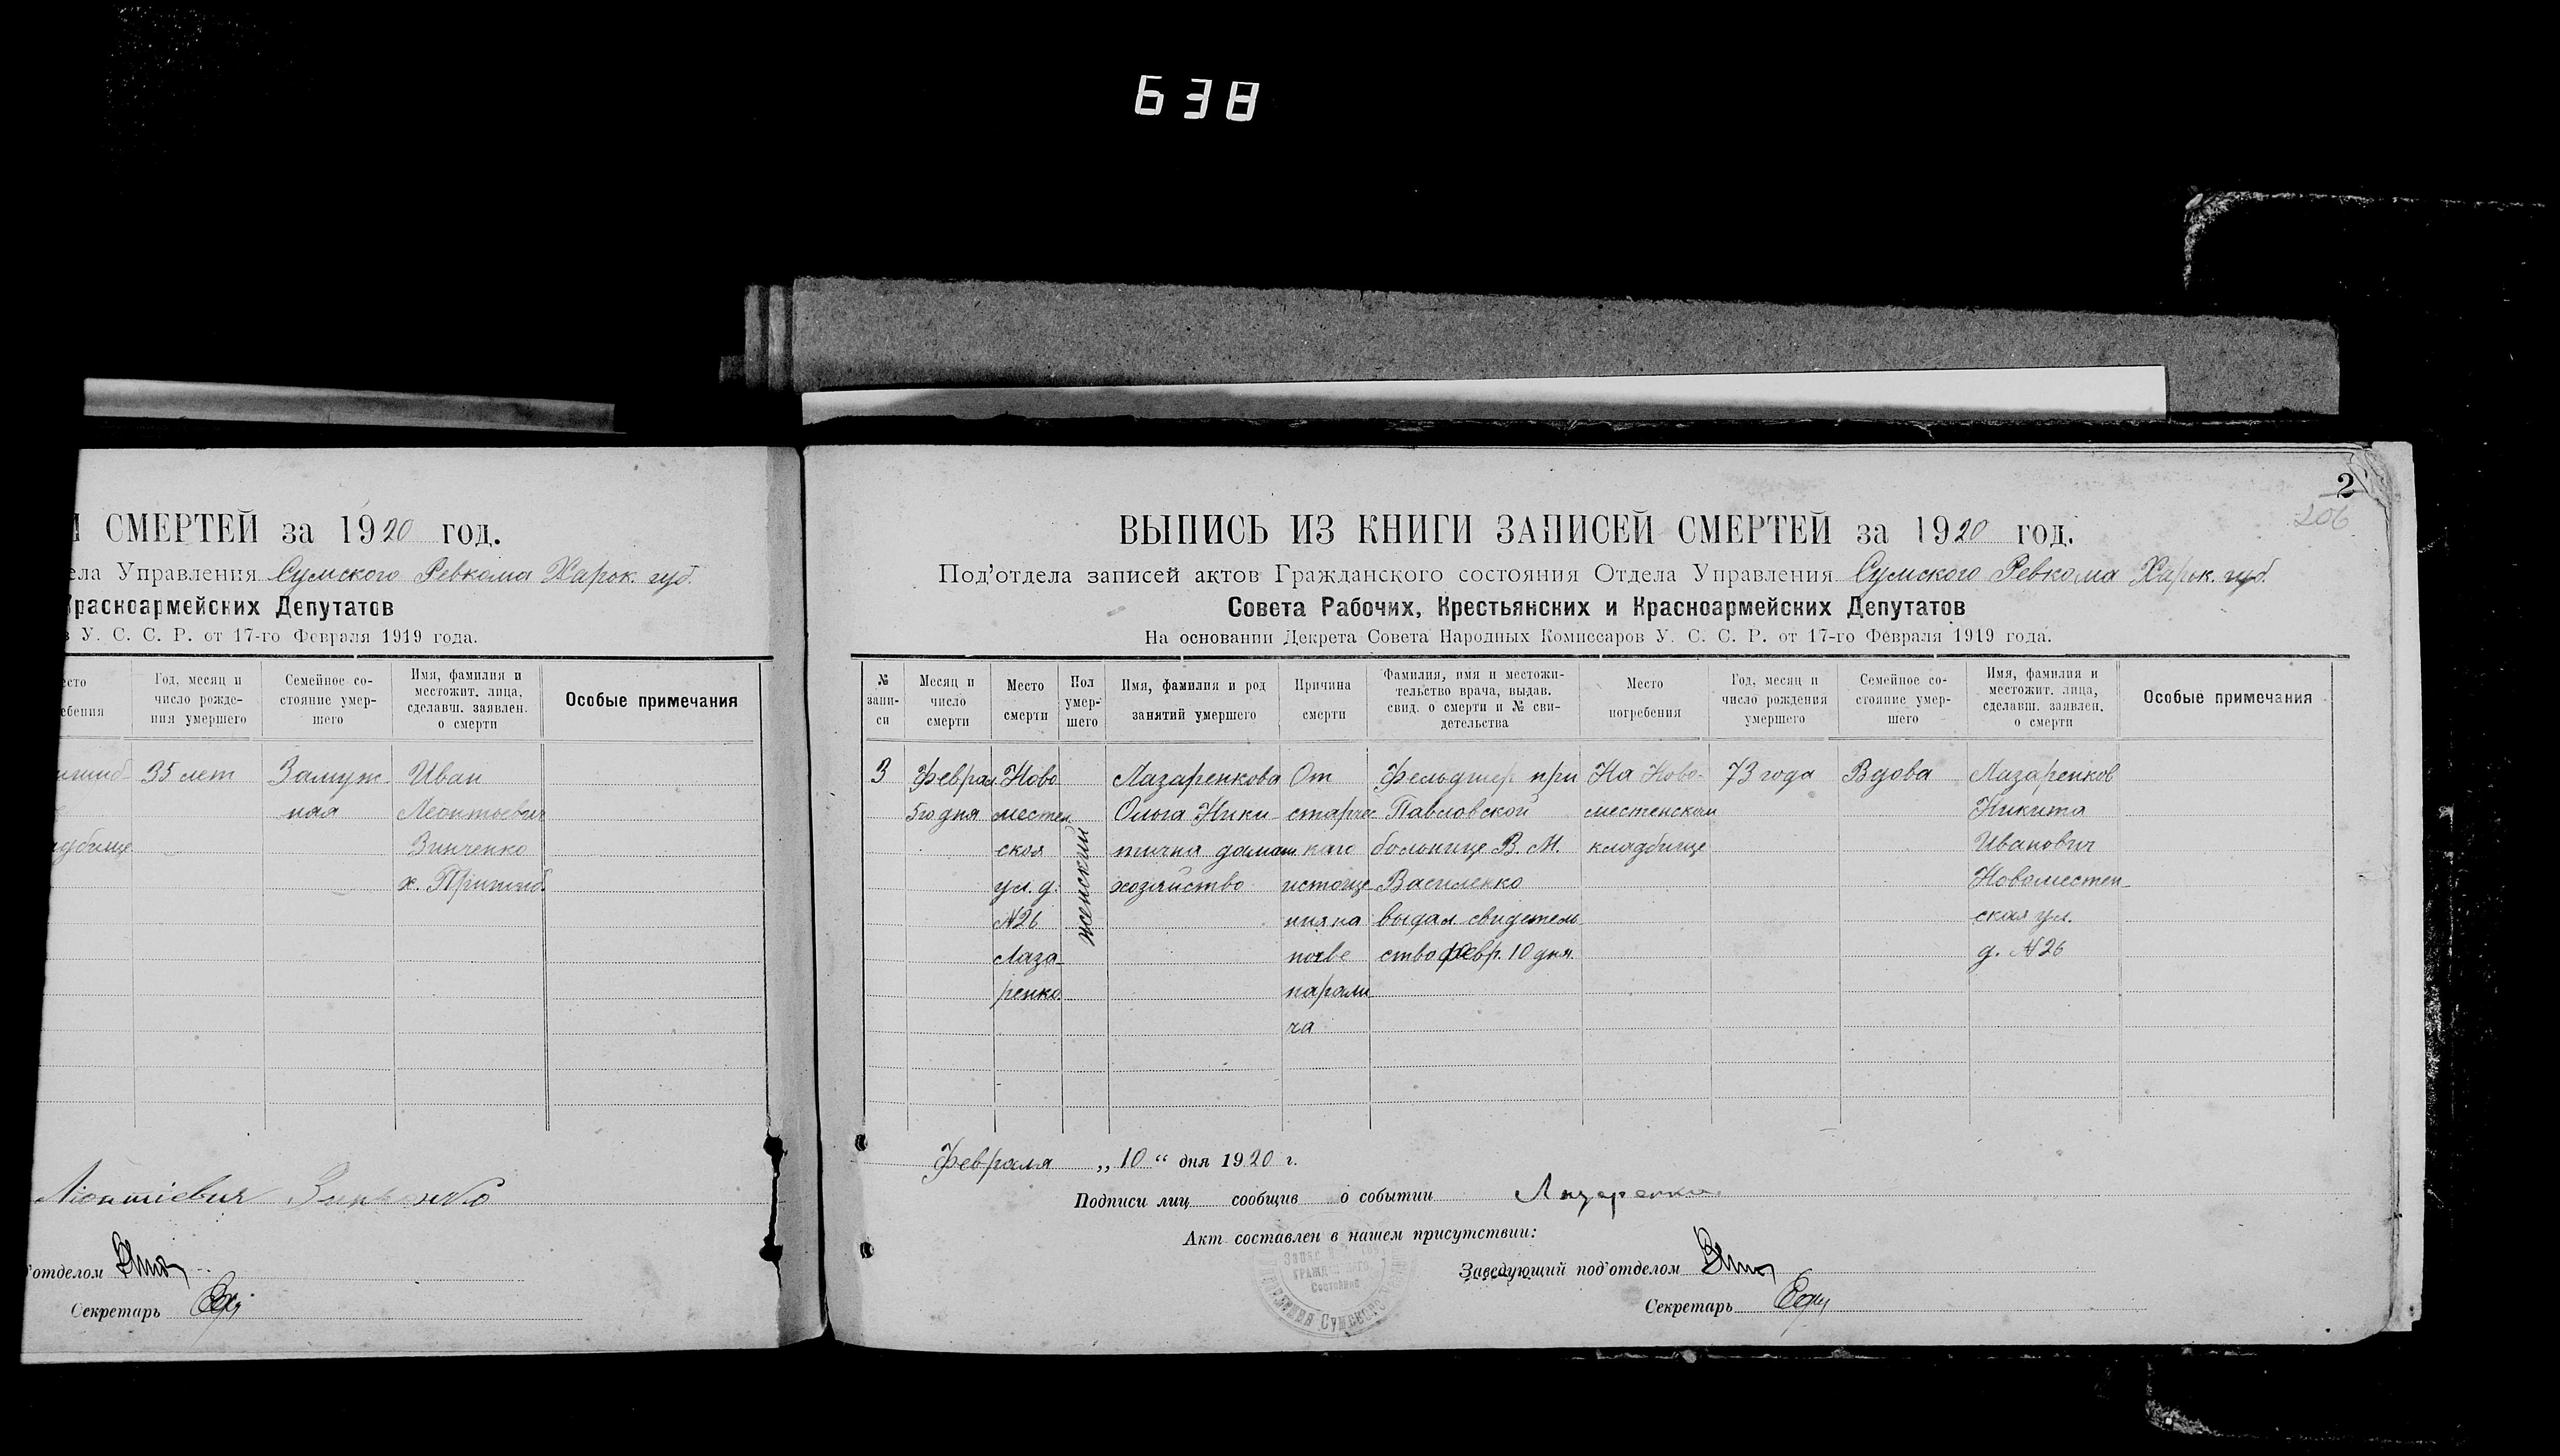 638
СМЕРТЕЙ за 1920 год.
Управления Сумского Ревкома Харьк. губ.
Красноармейских Депутатов
У. С. С. Р. от 17-го Февраля 1919 года.
Год, месяц и
число рожде-
ния умершего
Семейное со-
стояние умер-
шего
Имя, фамилия и
местожит. лица,
сделавш. заявлен.
о смерти
Особые примечания
35 лет
Замуж-
ная
Иван
Леонтьевич
Зинченко
Секретарь
2
206
ВЫПИСЬ ИЗ КНИГИ ЗАПИСЕЙ СМЕРТЕЙ за 1920 год.
Под'отдела записей актов Гражданского состояния Отдела Управления Сумского Ревкома Харьк. губ.
Совета Рабочих, Крестьянских и Красноармейских Депутатов
На основании Декрета Совета Народных Комиссаров У. С. С. Р. от 17-го Февраля 1919 года.
№
запи-
си
Месяц и
число
смерти
Место
смерти
Пол
умер-
шего
Имя, фамилия и род
занятий умершего
Причина
смерти
Фамилия, имя и местожи-
тельство врача, выдав.
свид. о смерти и № сви-
детельства
Место
погребения
Год, месяц и
число рождения
умершего
Семейное со-
стояние умер-
шего
Имя, фамилия и
местожит. лица,
сделавш. заявлен.
о смерти
Особые примечания
3
Феврал
5го дня
Ново
местен
ская
ул. д.
№26
Лаза
ренко
женский
Лазаренкова
Ольга Ники
тична домаш
хозяйство
От
старчес
каго
истоще
ния на
почве
парали
ча
Фельдшер при
Павловской
больнице В. М.
Василенко
выдал свидетель
ство февр. 10 дня
На Ново-
местенском
кладбище
73 года
Вдова
Лазаренков
Никита
Иванович
Новоместен
ская ул.
д. №26
Февраля „10“ дня 1920 г.
Подписи лиц сообщив о событии Лазаренко
Акт составлен в нашем присутствии:
Заведующий под'отделом
Секретарь